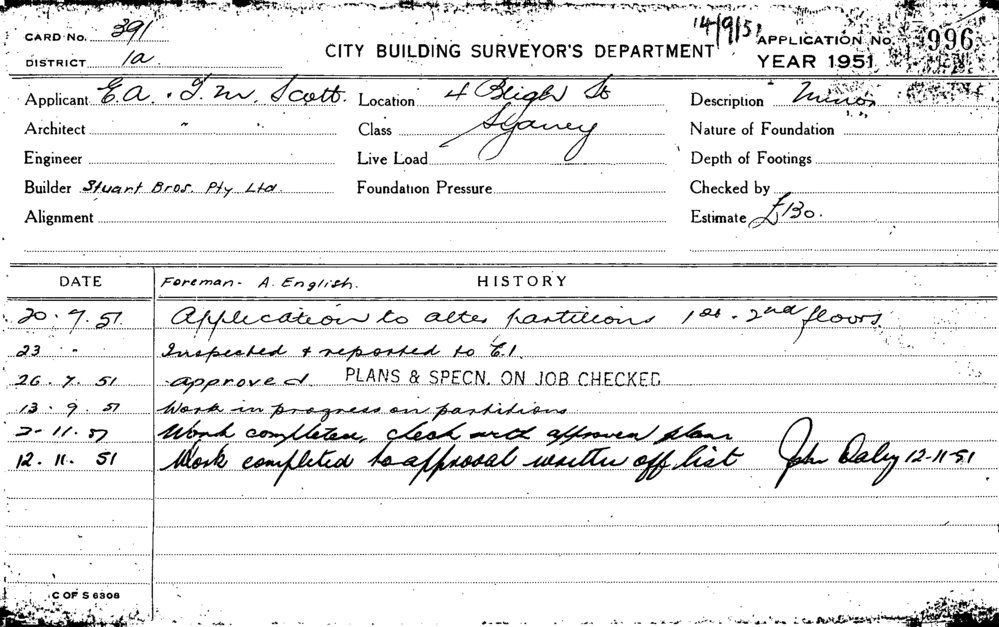 CARD No. 391
14/9/51
APPLICATION No. 996
DISTRICT 1a
CITY BUILDING SURVEYOR'S DEPARTMENT
YEAR 1951
Applicant E.A. & T.M. Scott. Location 4 Bligh St Description Minor
Architect " " Class Sydney Nature of Foundation
Engineer Live Load Depth of Footings
Builder Stuart Bros. Pty Ltd. Foundation Pressure Checked by
Alignment Estimate £130.
DATE Foreman - A. English. HISTORY
20.7.51 Application to alter partitions 1st - 2nd floors
23 " Inspected & reported to E.I.
26.7.51 approved PLANS & SPECN. ON JOB CHECKED
13.9.51 Work in progress on partitions
2-11.51 Work completed, check with approved plans
12.11.51 Work completed to approval written off list John Daley 12-11-51
C OF S 6308